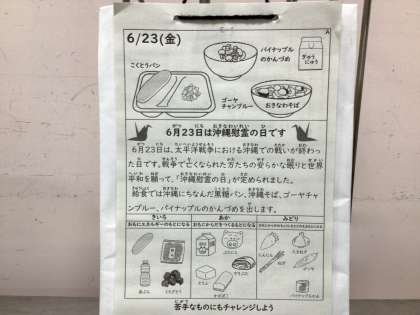 A
6/23(金)
こくとうパン
パイナップル
のかんづめ
ぎゅう
にゅう
ゴーヤ
チャンプルー
おきなわそば
6月23日は沖縄慰霊の日です
6月23日は、太平洋戦争における沖縄での戦いが終わっ
た日です。戦争で亡くなられた方たちの安らかな眠りと世界
平和を願って、「沖縄慰霊の日」が定められました。
給食では沖縄にちなんだ黒糖パン、沖縄そば、ゴーヤチャ
ンプルー、パイナップルのかんづめを出します。
きいろ
あか
みどり
おもにエネルギーのもとになる
おもにからだをつくるもとになる
にんじん
苦手なものにもチャレンジしよう